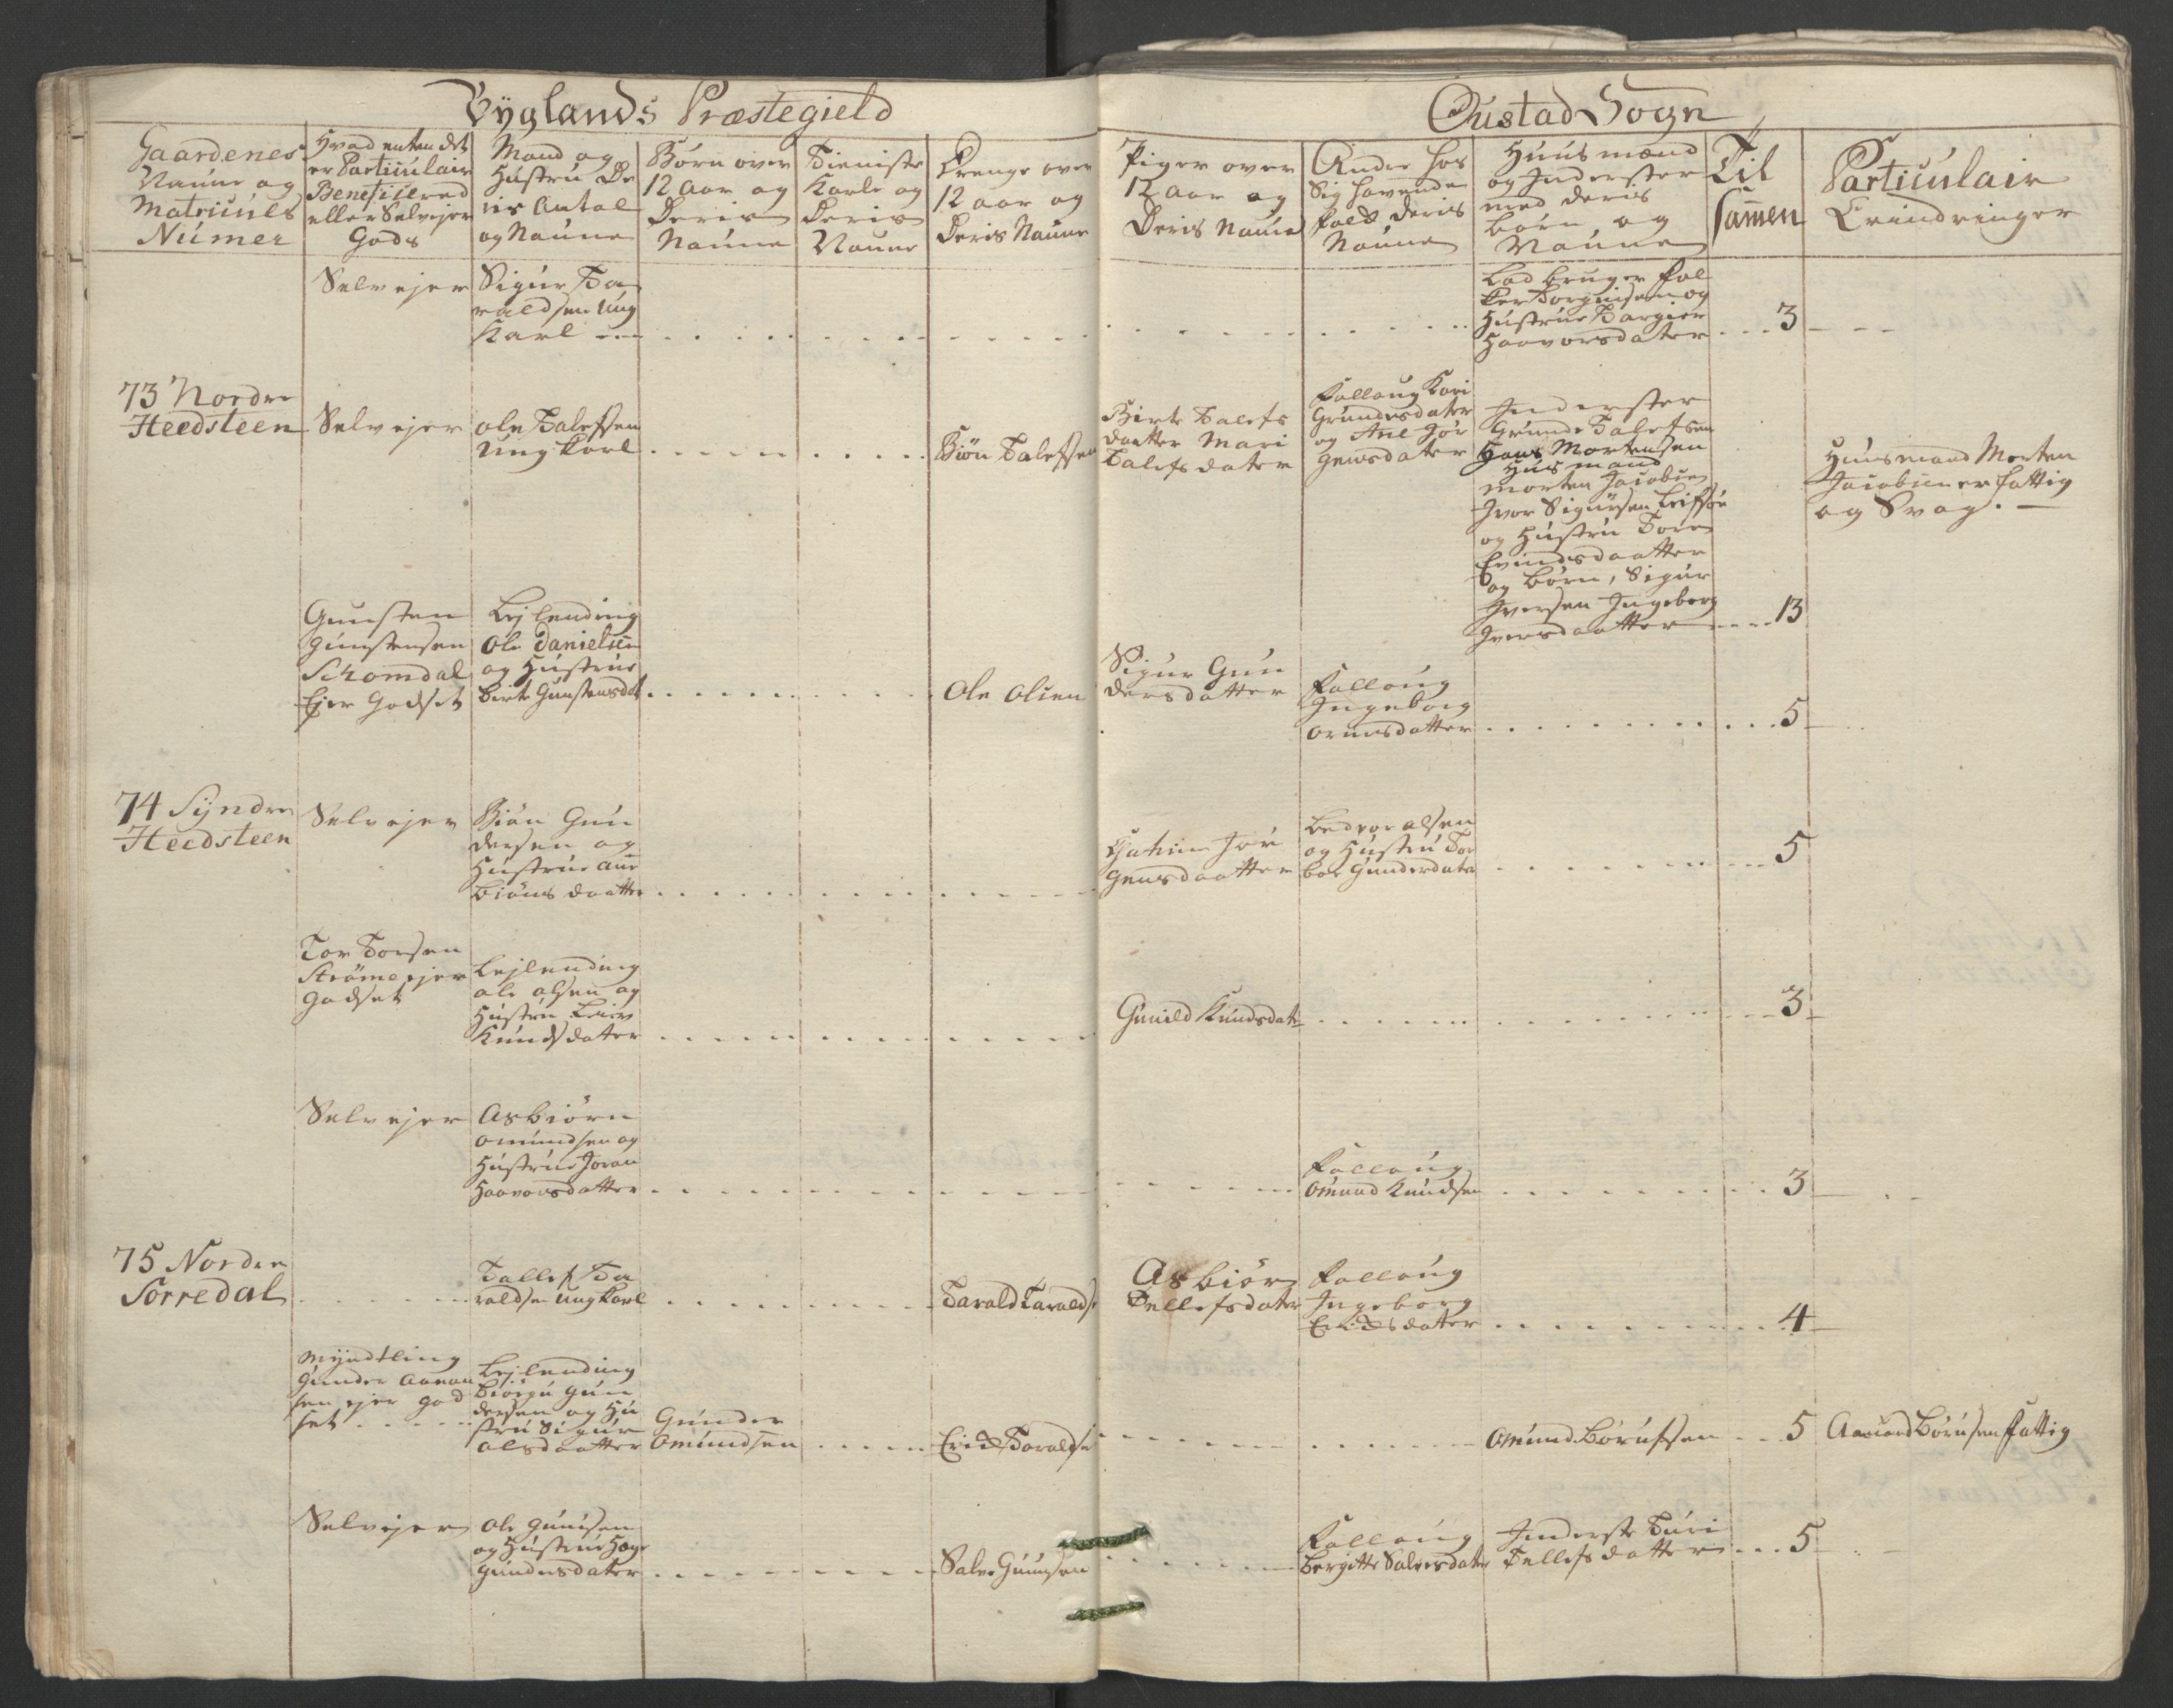 Byglands Præstegield
Oustad Sogn
Gaardenes
Naune og
Matriculs
Numer
Hvad enten det
er Particulair
Beneficered
eller Selvejer
Gods
Mand og
Hustru De
ris Antal
og Naune
Børn over
12 Aar og
Deris
Naune
Tieniste
Karle og
Deris
Naune
Drenge over
12 aar og
Deris Naune
Piger over
12 Aar og
Deris Naune
Andre hos
Sig havende
folk Deris
Naune
Huusmænd
og Inderster
med deris
børn og
Naune
Til
samen
Particulair
Erindringer
Selvejer
Sigur Ta
raldsen Ung
Karl
bruger
Hustrue Bargier
Haavorsdater
3
73 Nordre
Heedsteen
Selvejer
Ole Talefsen
Ung Karl
Biøn Talefsen
Birte Talefs
daatter Mari
Talefsdater
Follaug Kari
Grundesdater
og Ane Jør
gensdater
Inderster
Grunde Talefsen
Hans Mortensen
Husmand
Morten Jacobsen
Ivor Sigursen
og Hustru Tore
Evindsdaatter
og børn, Sigur
Iversen Ingeborg
Iversdaatter
13
Huusmand Morten
Jacobsen er fattig
og Svag.
Gunsten
Gunstensen
Schomdal
Ejer Godset
Lejlending
Ole Danielsen
og Hustrue
birte Gunstensdat
Ole Olsen
Sigur Gun
dersdatter
Follaug
Ingeborg
Ormesdatter
5
74 Syndre
Heedsteen
Selvejer
Biøn Gun
dersen og
Hustrue Ane
biønsdaatter
Jør
gensdaatter
olsen
og Hustru Tor
bor Gundersdater
5
Tor Torsen
Strøme ejer
Godset
Lejlending
ole olsen og
Hustru
Knudsdater
Gunild Knudsdater
3
Selvejer
Asbiørn
omundsen og
Hustrue Joran
Haavorsdatter
Follaug
Omund Knudsen
3
75 Nordre
Sorredal
Tallef Ta
raldsen Ung Karl
Tarald Taralds
Asbiør
Tellefsdater
Follaug
Ingeborg
Erichsdatter
4
Myndtling
Gunder Aanen
sen ejer God
set
Lejlending
Biørgu Gun
dersen og Hu
stru Sigur
olsdaatter
Gunder
Omundsen
Erich Taralds
Omund Børufsen
5
Aamund Børufsen Fattig
Selvejer
Ole Gunnsen
og Hustrue Hæge
Gundersdater
Salve Gunnsen
Follaug
bergitte Salvesdater
Inderste Turi
Tellefsdatter
5